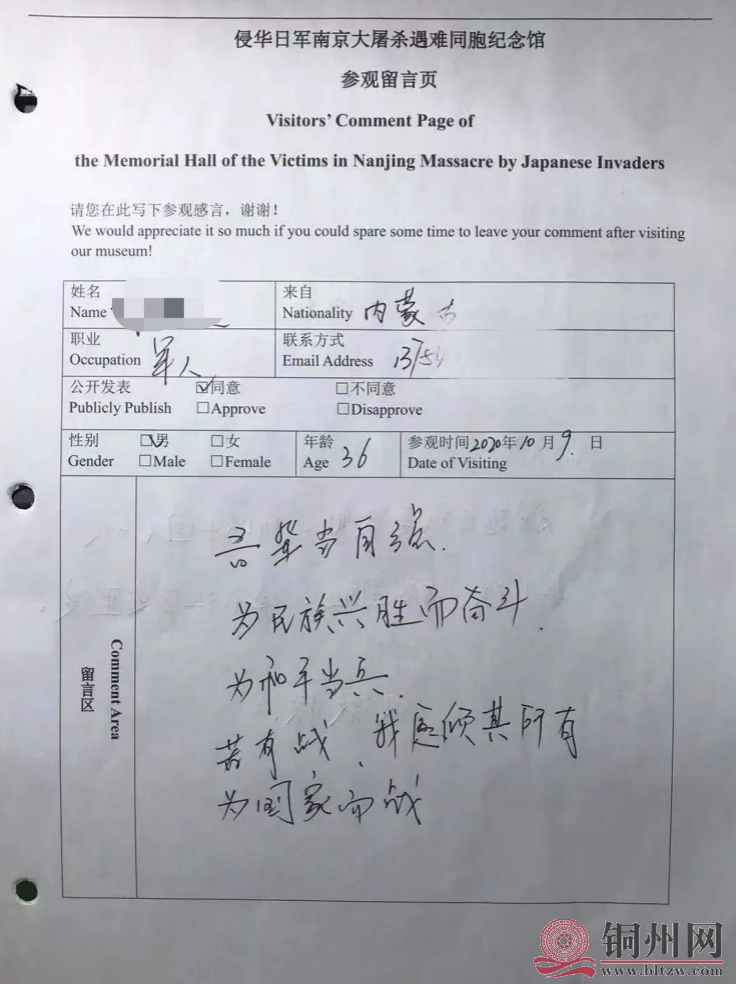 侵华日军南京大屠杀遇难同胞纪念馆
参观留言页
Visitors' Comment Page of
the Memorial Hall of the Victims in Nanjing Massacre by Japanese Invaders
请您在此写下参观感言，谢谢！
We would appreciate it so much if you could spare some time to leave your comment after visiting
our museum!
姓名
Name
来自
Nationality 内蒙古
职业
Occupation 军人
联系方式
Email Address 13754
公开发表 ☑同意 □不同意
Publicly Publish □Approve □Disapprove
性别 ☑男 □女
Gender □Male □Female
年龄
Age 36
参观时间2020年10月9日
Date of Visiting
留言区
Comment Area
吾辈当自强.
为民族兴胜而奋斗.
为和平当兵.
若有战、我愿倾其所有
为国家而战
铜州网
www.bltzw.com